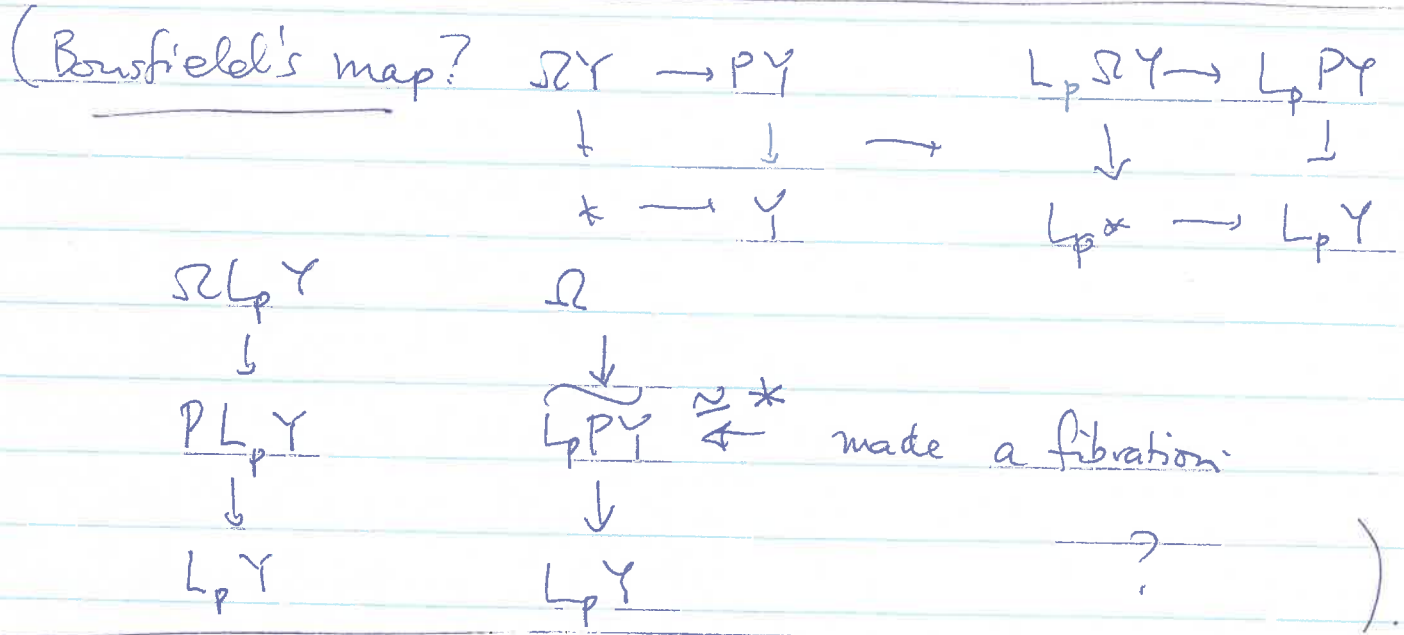 (Bousfield's map? ΩY → PY L_pΩY → L_pPY
↓ ↓ → ↓ ↓
* → Y L_p* → L_pY
ΩL_pY Ω
↓ ↓
PL_pY L_pPY ≃ * ← made a fibration.
↓ ↓ ?
L_pY L_pY ).